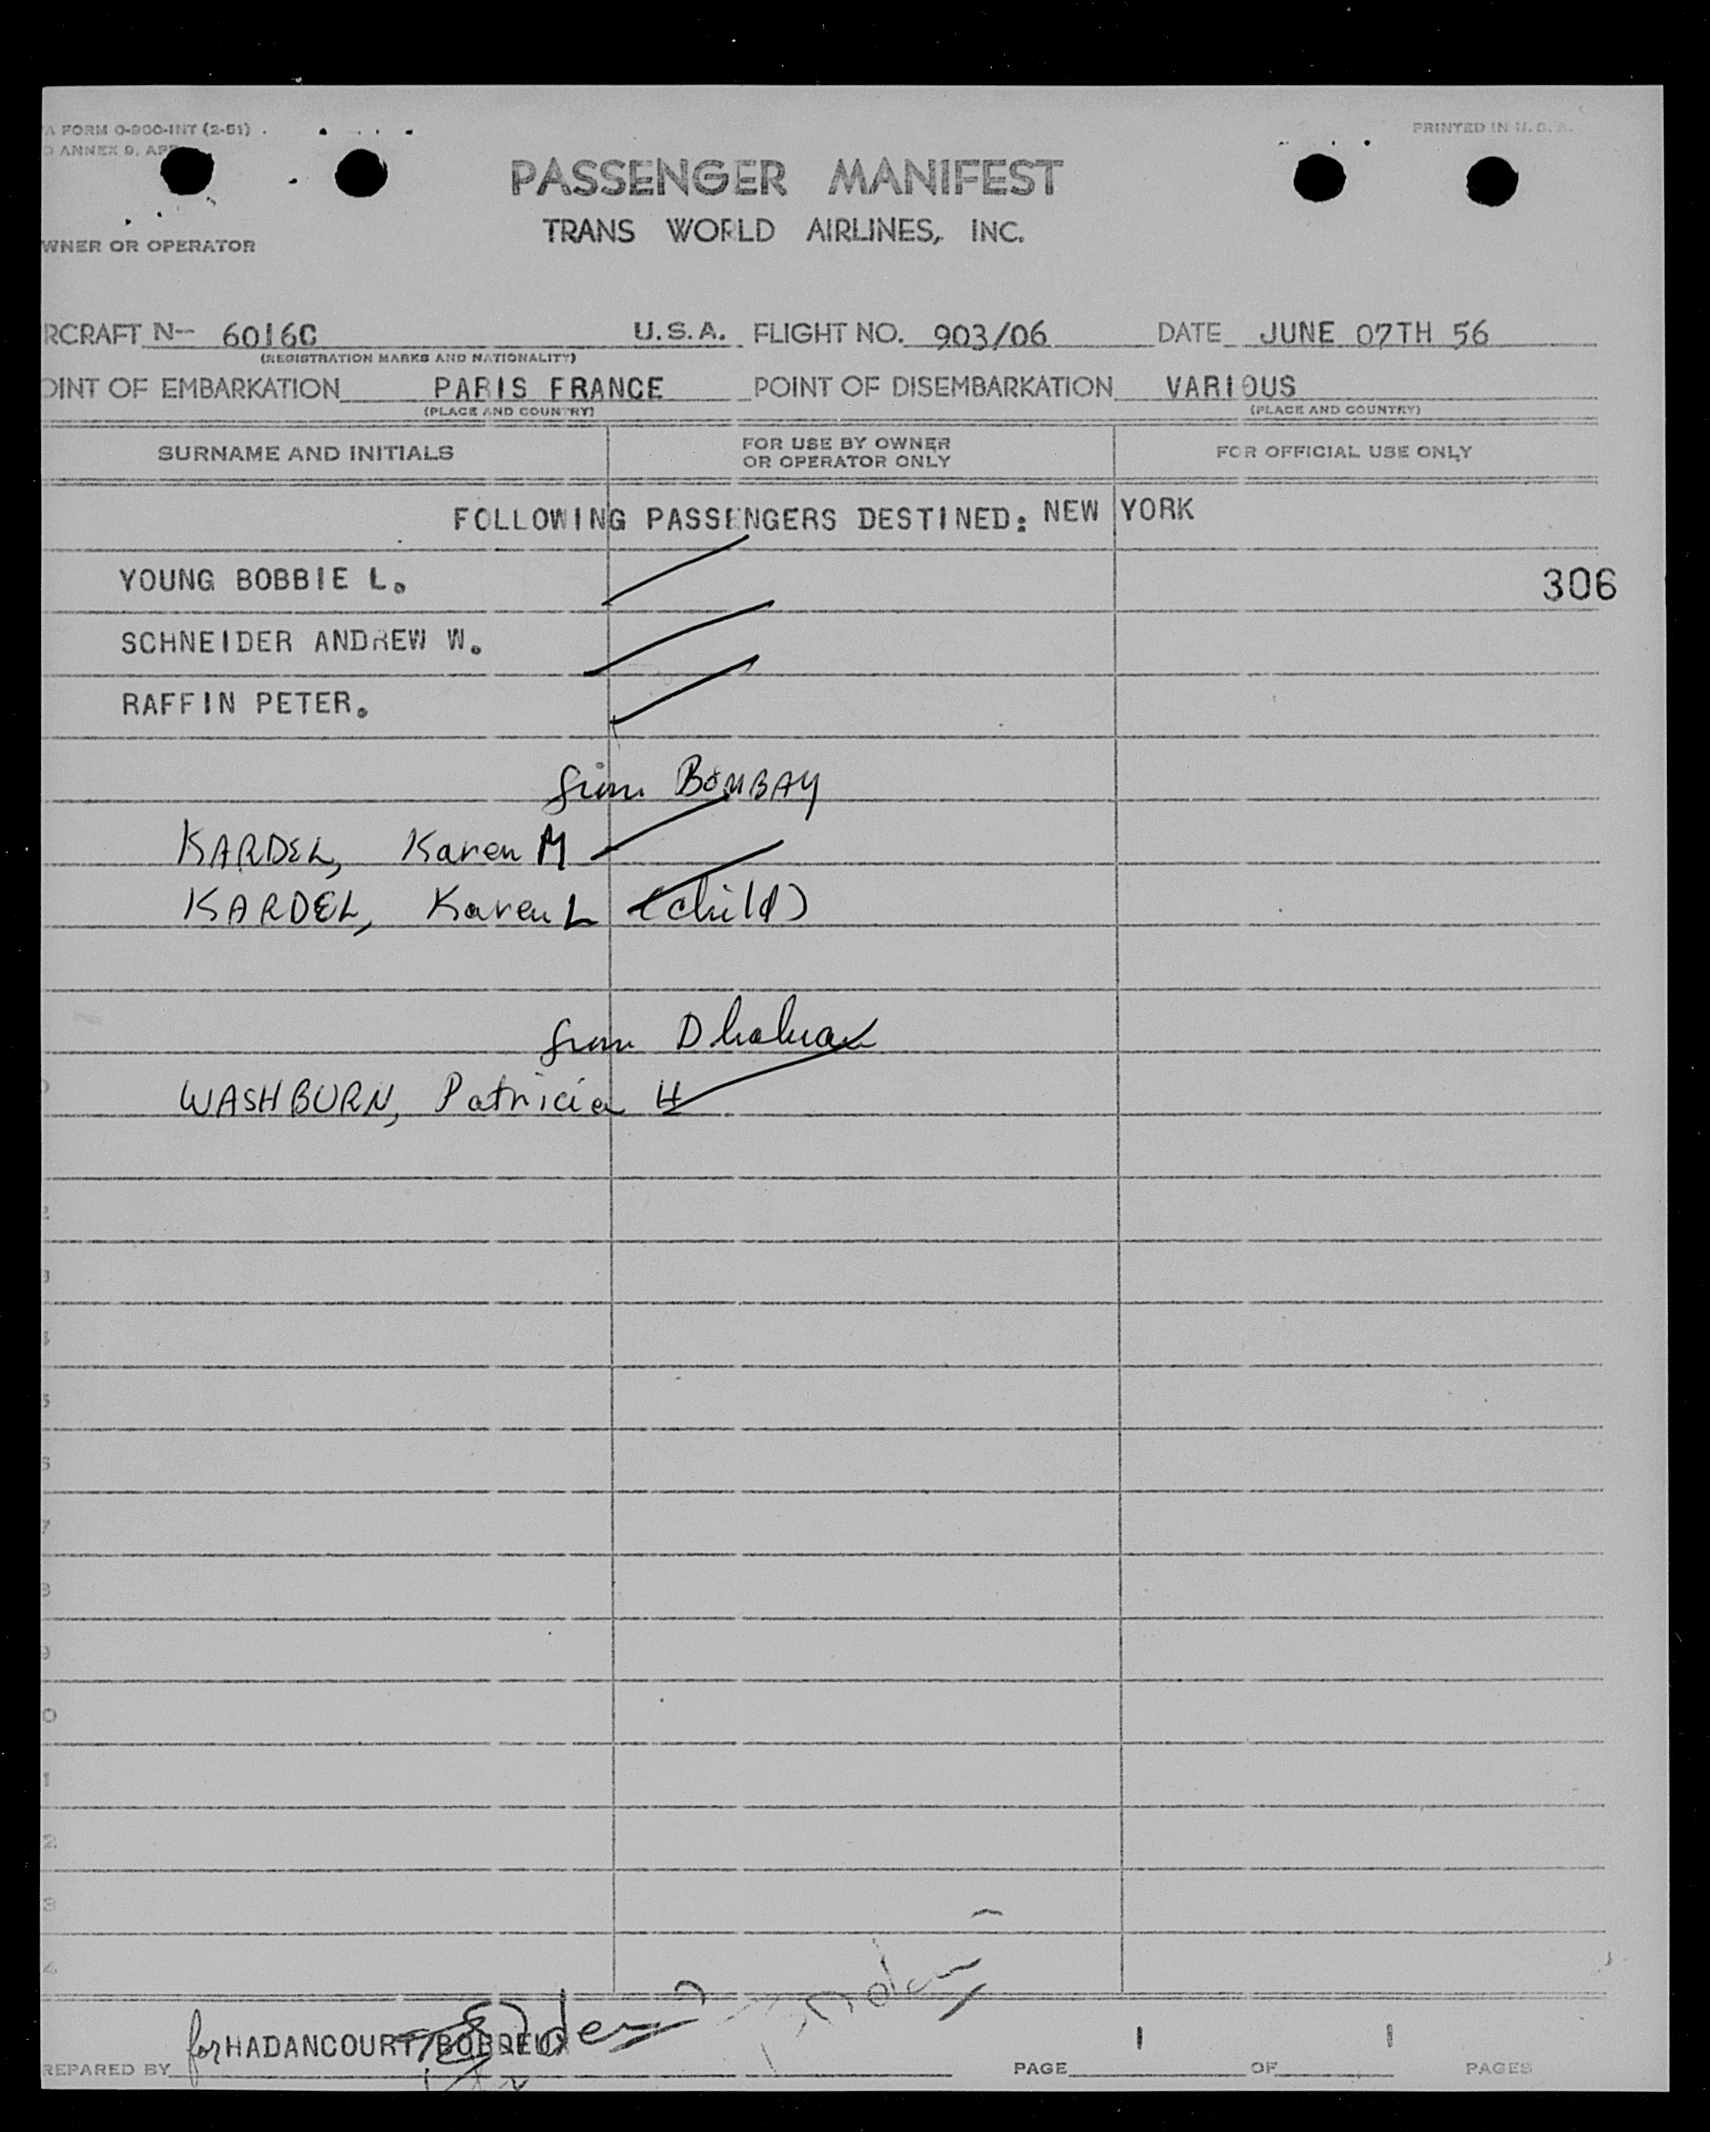 A FORM 0-900-INT (2-51)
PRINTED IN U.S.A.
O ANNEX 9, APP
PASSENGER MANIFEST
TRANS WORLD AIRLINES, INC.
WNER OR OPERATOR
RCRAFT N-- 6016C U.S.A. FLIGHT NO. 903/06 DATE JUNE 07TH 56
(REGISTRATION MARKS AND NATIONALITY)
OINT OF EMBARKATION PARIS FRANCE POINT OF DISEMBARKATION VARIOUS
(PLACE AND COUNTRY) (PLACE AND COUNTRY)
SURNAME AND INITIALS FOR USE BY OWNER OR OPERATOR ONLY FOR OFFICIAL USE ONLY
FOLLOWING PASSENGERS DESTINED: NEW YORK
YOUNG BOBBIE L. 306
SCHNEIDER ANDREW W.
RAFFIN PETER.
from BOMBAY
KARDEL, Karen M
KARDEL, Karen L (child)
from Dhahran
WASHBURN, Patricia H
0
2
3
4
5
6
7
8
9
0
1
2
3
4
for HADANCOURT/
REPARED BY PAGE 1 OF 1 PAGES